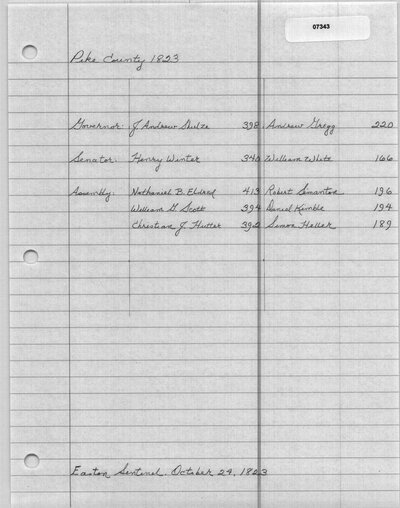 07343
Pike County 1823
Governor: J. Andrew Shulze 398 Andrew Gregg 220
Senator: Henry Winter 340 William White 166
Assembly: Nathaniel B. Eldred 413 Robert Smanton 196
William G. Scott 394 Daniel Kimble 194
Christian J. Hutter 392 Simon Heller 189
Easton Sentinel, October 24, 1823